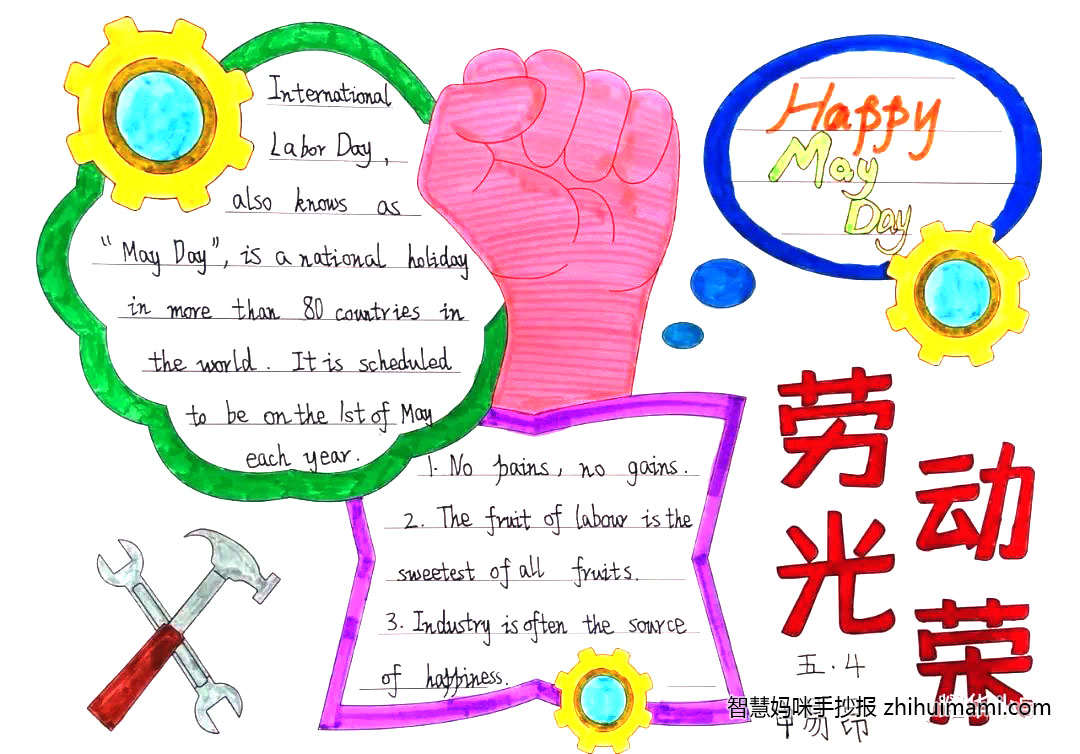 International
Labor Day,
also knows as
“May Day”, is a national holiday
in more than 80 countries in
the world. It is scheduled
to be on the 1st of May
each year.
1. No pains, no gains.
2. The fruit of labour is the
sweetest of all fruits.
3. Industry is often the source
of happiness.
Happy
May
Day
劳动
光荣
五.4
智慧妈咪手抄报 zhihuimami.com